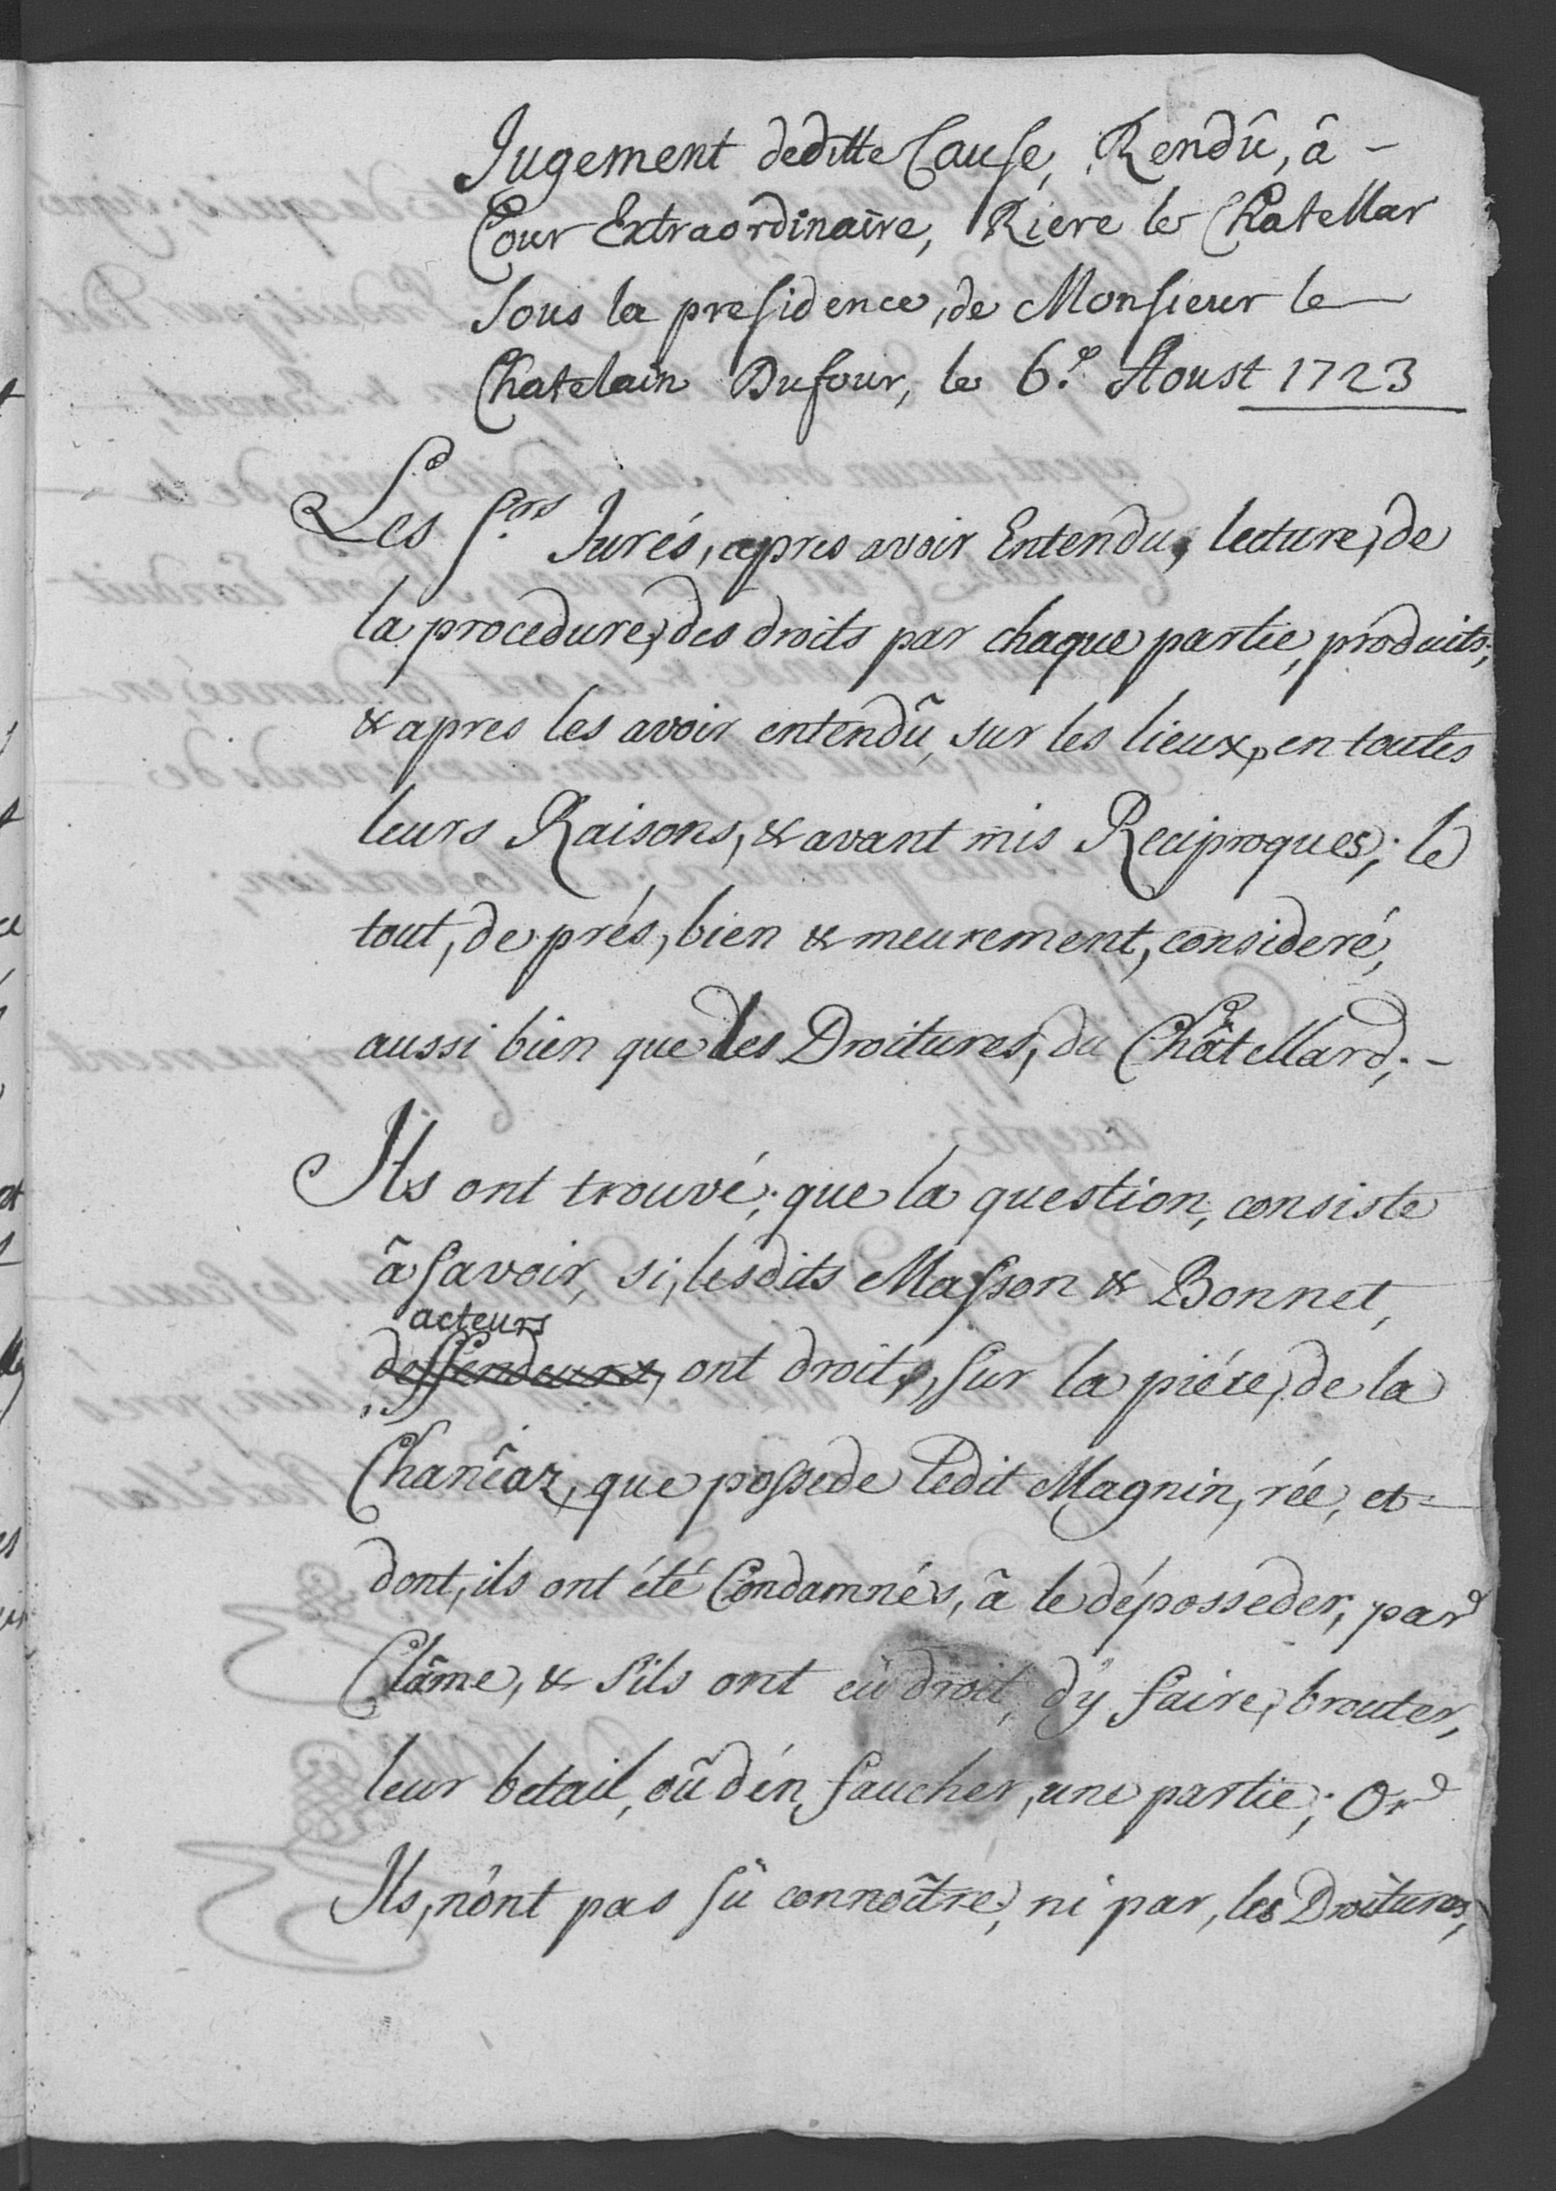 Jugement deditte Cause, Rendû, â -
Cour Extraordinaire, Riere le Chatellar
Sous la presidence, de Monsieur le
Chatelain Dufour, le 6.e Aoust 1723
Les Srs Jurés, apres avoir Entendu, lecture, de
la procedure, des droits par chaque partie, produits,
& apres les avoir entendû, sur les lieux, en toutes
leurs Raisons, & avant mis Reciproques; le
tout, de prés, bien & meurement, consideré,
aussi bien que les Droitures, du Châtellard; -
Ils ont trouvé; que la question, consiste
â savoir, si, lesdits Masson & Bonnet,
acteurs
deffendeurs, ont droit, sur la piéce, de la
Chanéaz, que possede ledit Magnin, rée, et
dont, ils ont été Condamnés, â le déposseder, par
Clâme, & s'ils ont eû droit, d'y faire, brouter,
leur betail, oû d'en faucher, une partie; Or
Ils, n'ont pas sû connoître, ni par, les Droitures,